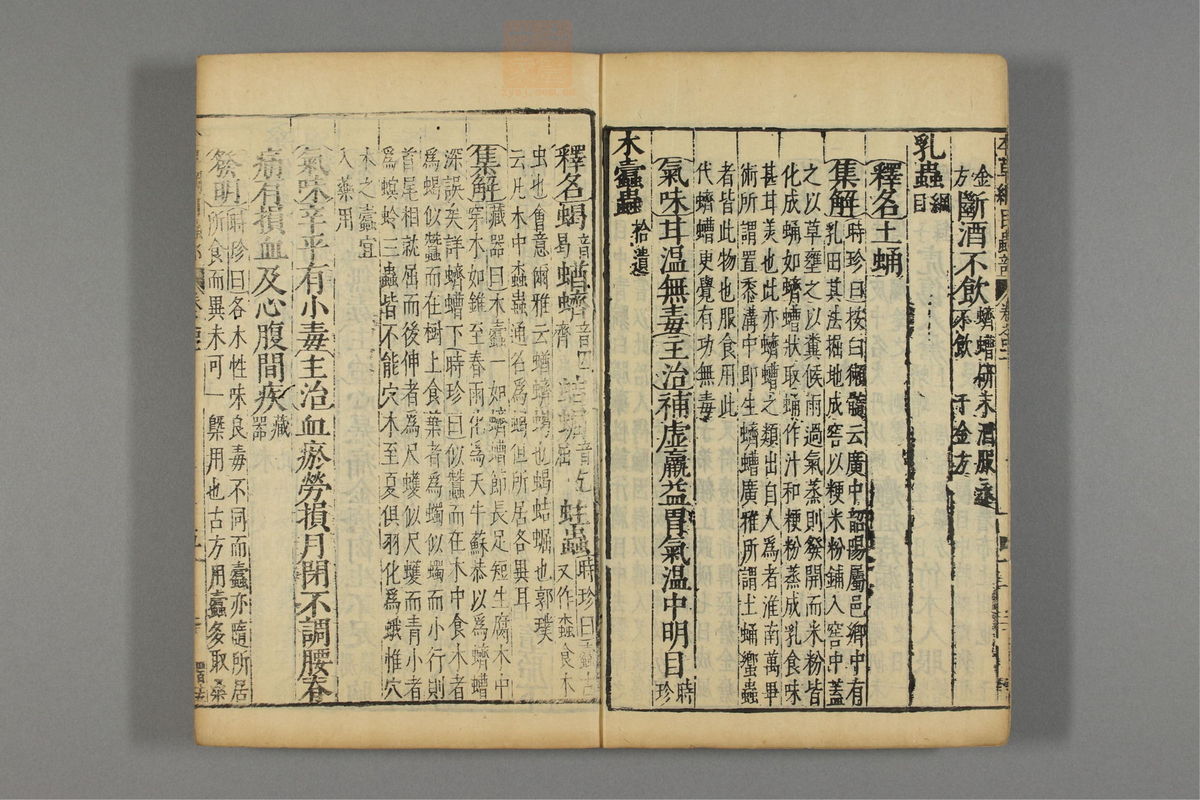 金方斷酒不飲蠐螬研末酒服永不飲 千金方
乳蟲綱目
釋名土蛹
集解時珍曰按白獺髓云廣中韶陽屬邑鄉中有乳田其法掘地成窖以粳米粉鋪入窖中蓋
之以草壅之以糞候雨過氣蒸則發開而米粉皆
化成蛹如蠐螬狀取蛹作汁和粳粉蒸成乳食味
甚甘美也此亦蠐螬之類出自人為者淮南萬畢
術所謂置黍溝中即生蠐螬廣雅所謂土蛹蠁蟲
者皆此物也服食用此
代蠐螬更覺有功無毒
氣味甘溫無毒主治補虛羸益胃氣溫中明目時珍
木蠹蟲拾遺
釋名蝎音曷蝤蠐音 齊蛣𧌑音 屈蛀蟲時珍曰蠹古又作螙食木
虫也會意爾雅云蝤蠐蝎也蝎蛣𧌑也郭璞
云凡木中蠹蟲通名為蝎但所居各異耳
集解藏器曰木蠹一如蠐螬節長足短生腐木中穿木如錐至春雨化為天牛蘇恭以為蠐螬
深誤矣詳蠐螬下時珍曰似蠶而在木中食木者
為蝎似蠶而在樹上食葉者為蠋似蠋而小行則
首尾相就屈而後伸者為尺蠖似尺蠖而青小者
為螟蛉三蟲皆不能穴木至夏俱羽化為蛾惟穴
木之蠹宜
入藥用
氣味辛平有小毒主治血瘀勞損月閉不調腰脊
痛有損血及心腹間疾藏器
發明時珍曰各木性味良毒不同而蠹亦隨所居所食而異未可一槩用也古方用蠹多取桑